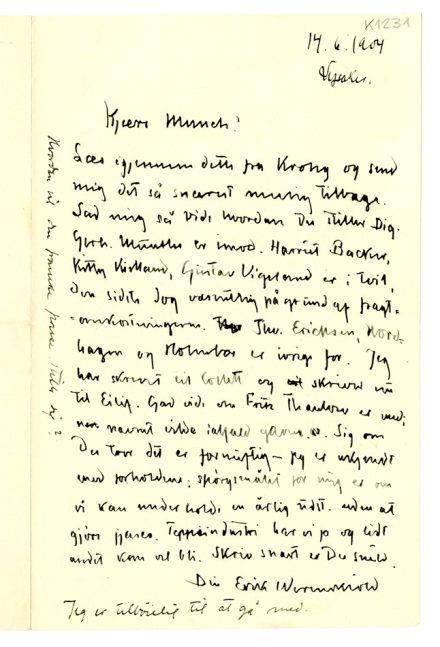 K1231
14. 6. 1904
Kjære Munch!
Læs igjennem dette fra Krohg og send
mig det så snarest mulig tilbage.
Lad mig så vide hvordan Du stiller Dig.
Gerh. Munthe er imod. Harriet Backer,
Kitty Kielland, Gustav Vigeland er i tvil,
den sidste dog væsentlig på grund af fragt-
omkostningerne. Thv. Erichsen, Nord-
hagen og Holmboe er ivrige for. Jeg
har skrevet til Collett og skriver nu
til Eilif. Gad vide om Fritz Thaulow er med;
Sig om
Du tror det er fornuftig – jeg er ukjendt
med forholdene; spørgsmålet for mig er om
vi kan underholde en årlig udst. uden at
gjøre fiasco. Tæppeindustri har vi jo og lidt
andet kom vel til. Skriv snart er Du snild.
Din Erik Werenskiold
Jeg er tilbøielig til at gå med.
Hvordan vil den franske presse stille sig?